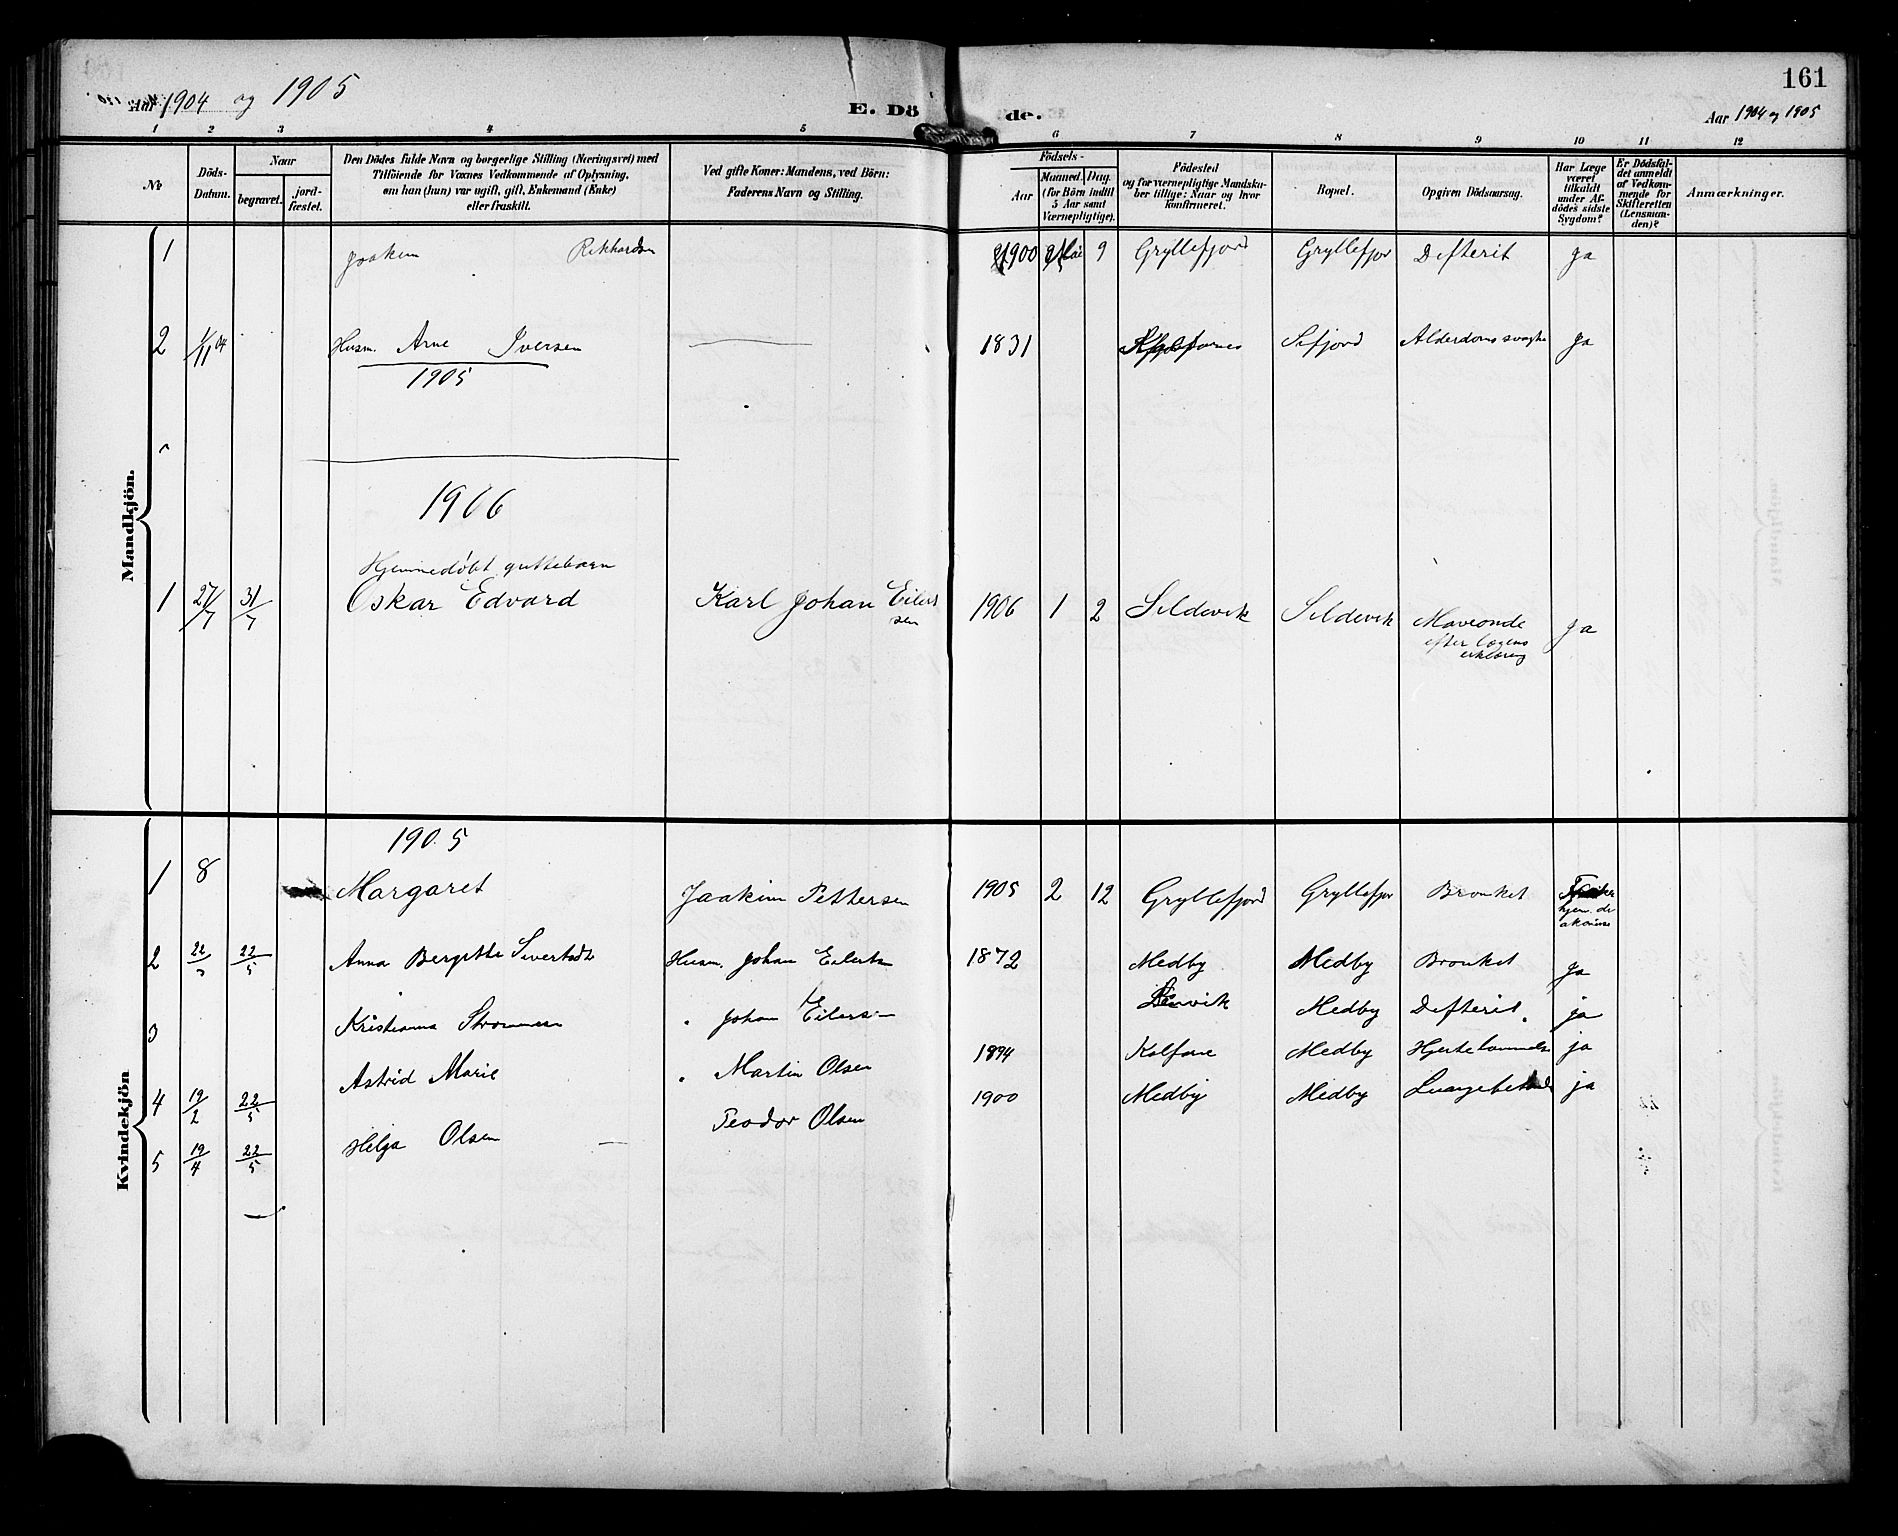 Aar 1904 og 1905
E. Dö de.
161
Aar 1904 og 1905
1 2 3 4 5 6 7 8 9 10 11 12
No
Döds-Datum.
Naar
begravet.
jord-fæstet.
Den Dödes fulde Navn og borgerlige Stilling (Næringsvei) med
Tilföiende for Voxnes Vedkommende af Oplysning,
om han (hun) var ugift, gift, Enkemand (Enke)
eller fraskilt.
Ved gifte Koner: Mandens, ved Börn:
Faderens Navn og Stilling.
Födsels-
Aar
Maaned. Dag.
(for Börn indtil
5 Aar samt
Værnepligtige).
Födested
og for værnepligtige Mandska-
ber tillige: Naar og hvor
konfirmeret.
Bopæl.
Opgiven Dödsaarsag.
Har Læge
været
tilkaldt
under Af-
dödes sidste
Sygdom?
Er Dödsfal-
det anmeldt
af Vedkom-
mende for
Skifteretten
(Lensman-
den)?
Anmærkninger.
Mandkjön.
1 Joakim Rikhardsen 1900 Mai 9 Gryllefjord Gryllefjor Defterit ja
2 1/11 04 Husm. Arne Iversen 1831 Sifjord Alderdomssvaghe ja
1905
1906
Hjemmedøbt guttebarn
1 27/7 31/7 Oskar Edvard Karl Johan Eilert
sen 1906 1 2 Sildevik Sildevik Maveonde ja
efter lægens
erklæring
Kvindekjön
1905
1 8 Margaret Joakim Pettersen 1905 2 12 Gryllefjord Gryllefjor Bronket
hjem. di
akonisse
2 22/3 22/5 Anna Bergitte Husm. Johan Eilerts 1872 Medby Medby Bronket ja
3 Kristianna " Johan Eilersen Lenvik Medby Defterit. ja
Astrid Marie " Martin Olsen 1894 Kalfarne Medby ja
4 19/2 22/5 Helga Olsen Teodor Olsen 1900 Medby Medby ja
5 19/4 22/5